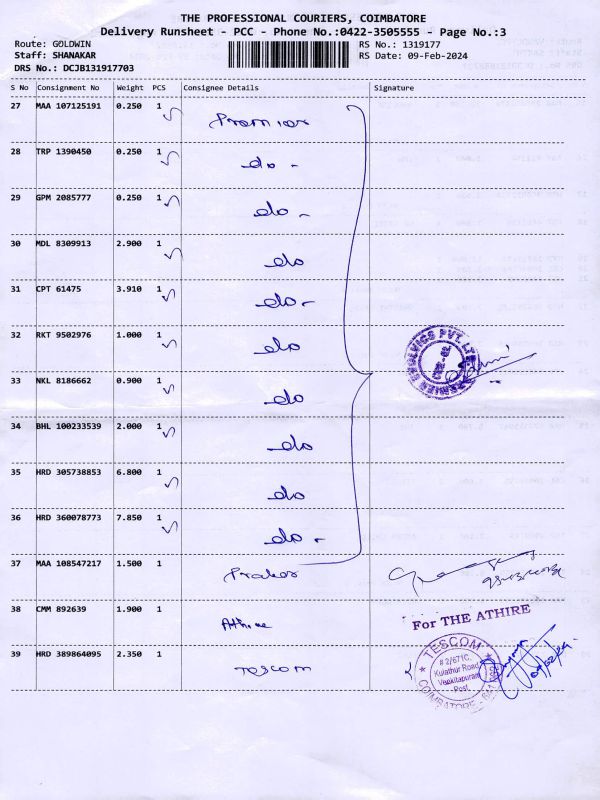 THE PROFESSIONAL COURIERS, COIMBATORE
Delivery Runsheet - PCC - Phone No.:0422-3505555 - Page No.:3
Route: GOLDWIN RS No.: 1319177
Staff: SHANAKAR RS Date: 09-Feb-2024
DRS No.: DCJB131917703
S No Consignment No Weight PCS Consignee Details Signature
27 MAA 107125191 0.250 1
28 TRP 1390450 0.250 1 do -
29 GPM 2085777 0.250 1 do -
30 MDL 8309913 2.900 1 do
31 CPT 61475 3.910 1 do -
32 RKT 9502976 1.000 1 do
33 NKL 8186662 0.900 1 do
34 BHL 100233539 2.000 1 do
35 HRD 305738853 6.800 1 do
36 HRD 360078773 7.850 1 do -
37 MAA 108547217 1.500 1
38 CMM 892639 1.900 1
For THE ATHIRE
39 HRD 389864095 2.350 1 Tescom
TESCOM
# 2/671C,
Kulathur Road
Venkitapuram
Post.
COIMBATORE